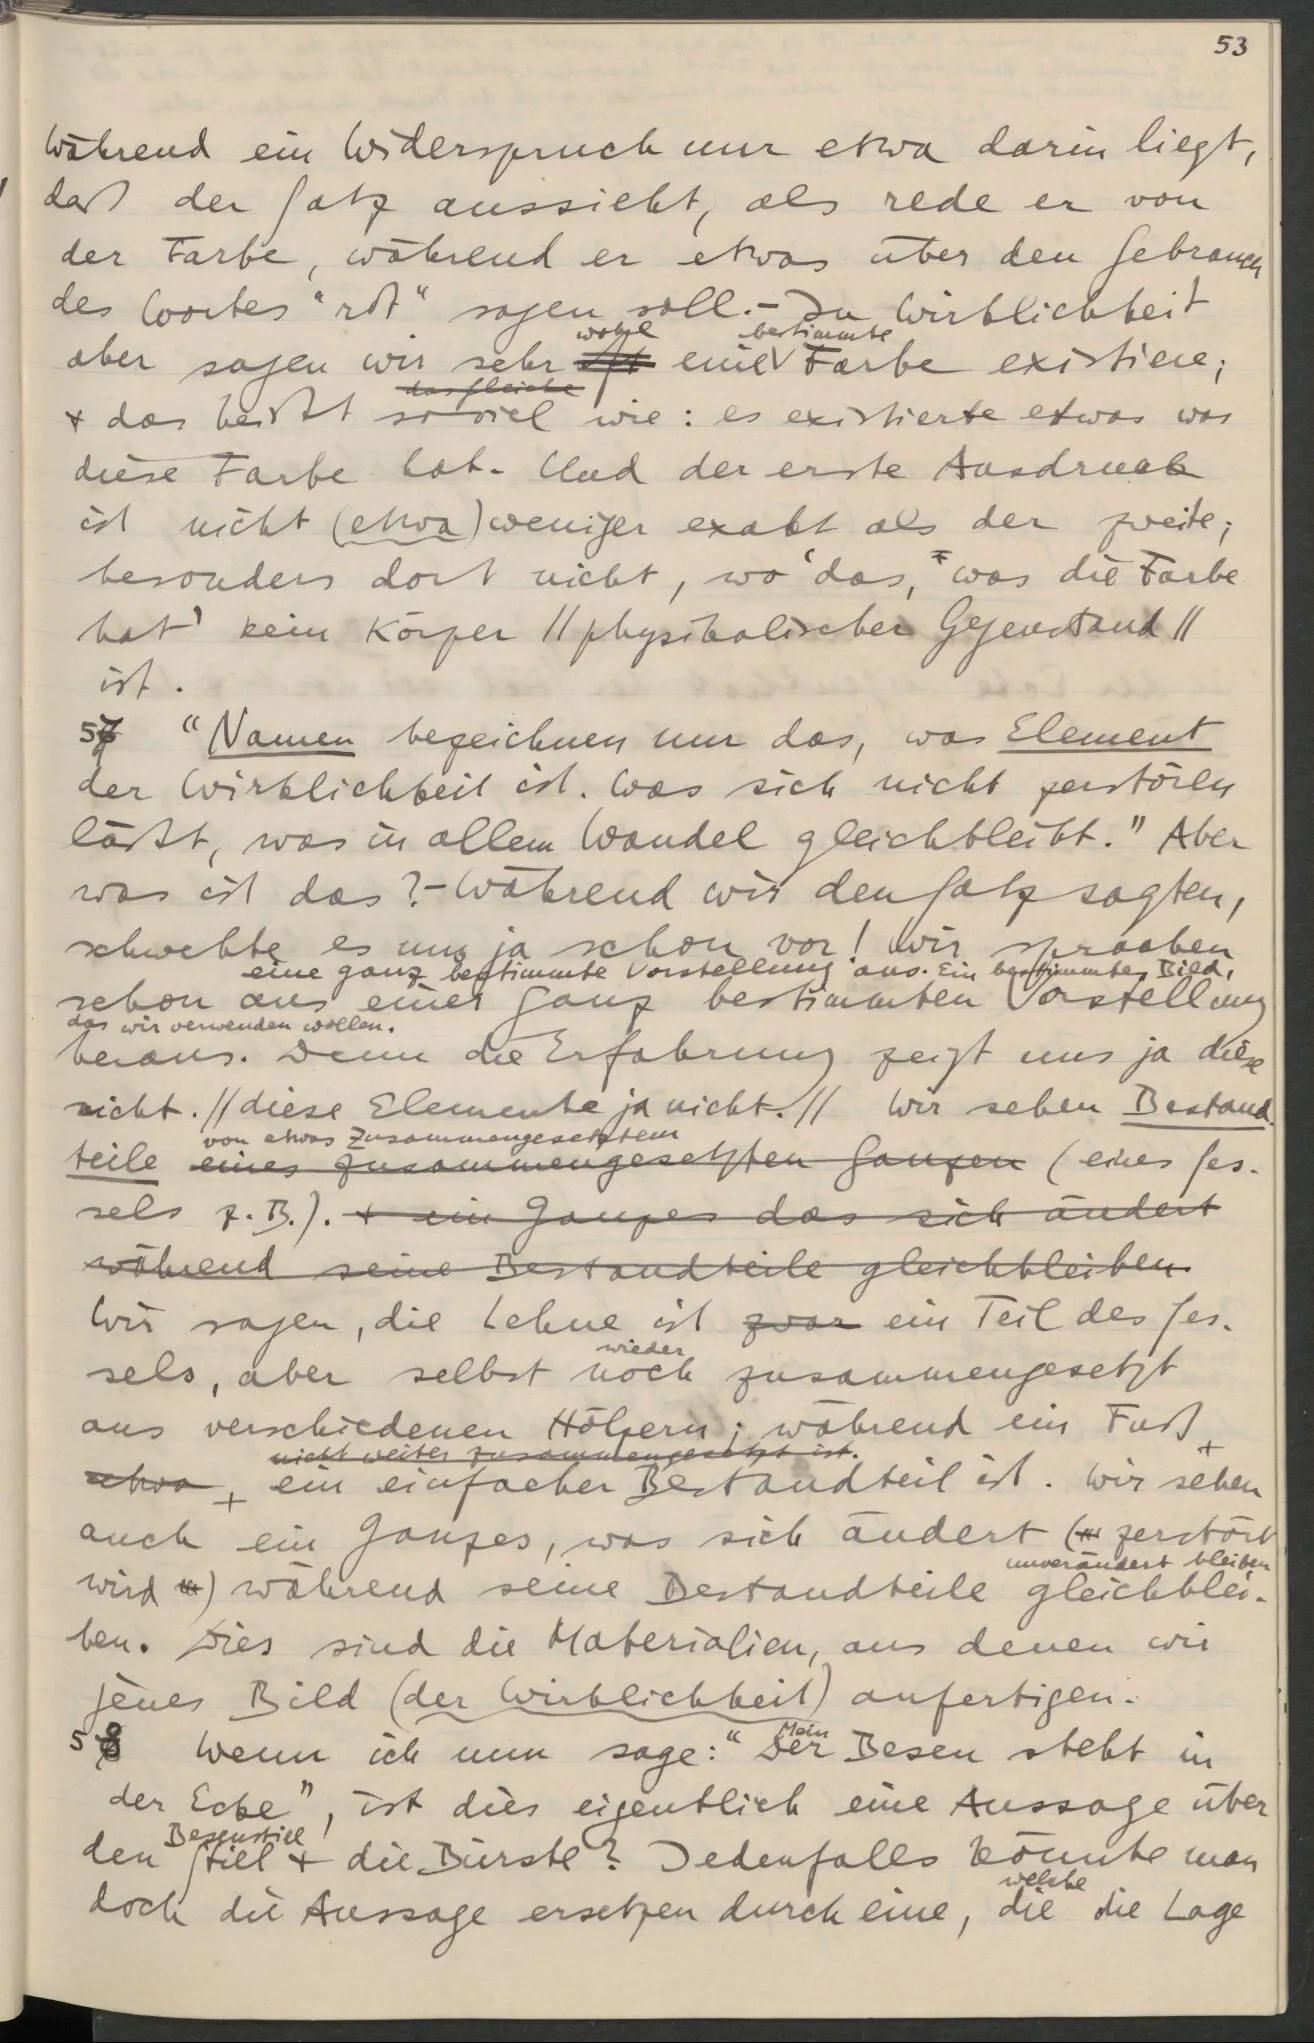 53
während ein Widerspruch nur etwa darin liegt,
daß der Satz aussieht, als rede er von
der Farbe, während er etwas über den Gebrauch
des Wortes "rot" sagen soll. – In Wirklichkeit
wohl bestimmte
aber sagen wir sehr oft eine Farbe existiere;
das gleiche
+ das heißt soviel wie: es existierte etwas was
diese Farbe hat. Und der erste Ausdruck
ist nicht (etwa) weniger exakt als der zweite;
besonders dort nicht, wo 'das, was die Farbe
hat' kein Körper // physikalischer Gegenstand //
ist.
57 "Namen bezeichnen nur das, was Element
der Wirklichkeit ist. Was sich nicht zerstören
läßt, was in allem Wandel gleichbleibt." Aber
was ist das? – Während wir den Satz sagten,
schwebte es uns ja schon vor! Wir sprachen
eine ganz bestimmte Vorstellung aus. Ein bestimmtes Bild,
schon aus einer ganz bestimmten Vorstellung
das wir verwenden wollen.
heraus. Denn die Erfahrung zeigt uns ja diese
nicht. // diese Elemente ja nicht. // Wir sehen Bestand-
von etwas Zusammengesetztem
teile eines zusammengesetzten Ganzen (eines Ses-
sels z.B.). + ein Ganzes das sich ändert
während seine Bestandteile gleichbleiben.
Wir sagen, die Lehne ist zwar ein Teil des Ses-
wieder
sels, aber selbst noch zusammengesetzt
aus verschiedenen Hölzern; während ein Fuß +
nicht weiter zusammengesetzt ist.
etwa + ein einfacher Bestandteil ist. Wir sehen
auch ein Ganzes, was sich ändert (zerstört
unverändert bleiben
wird) während seine Bestandteile gleichblei-
ben. Dies sind die Materialien, aus denen wir
jenes Bild (der Wirklichkeit) anfertigen.
58 Wenn ich nun sage: "Der Besen steht in
Mein
der Ecke", ist dies eigentlich eine Aussage über
Besenstiel
den Stiel + die Bürste? Jedenfalls könnte man
welche
doch die Aussage ersetzen durch eine, die die Lage